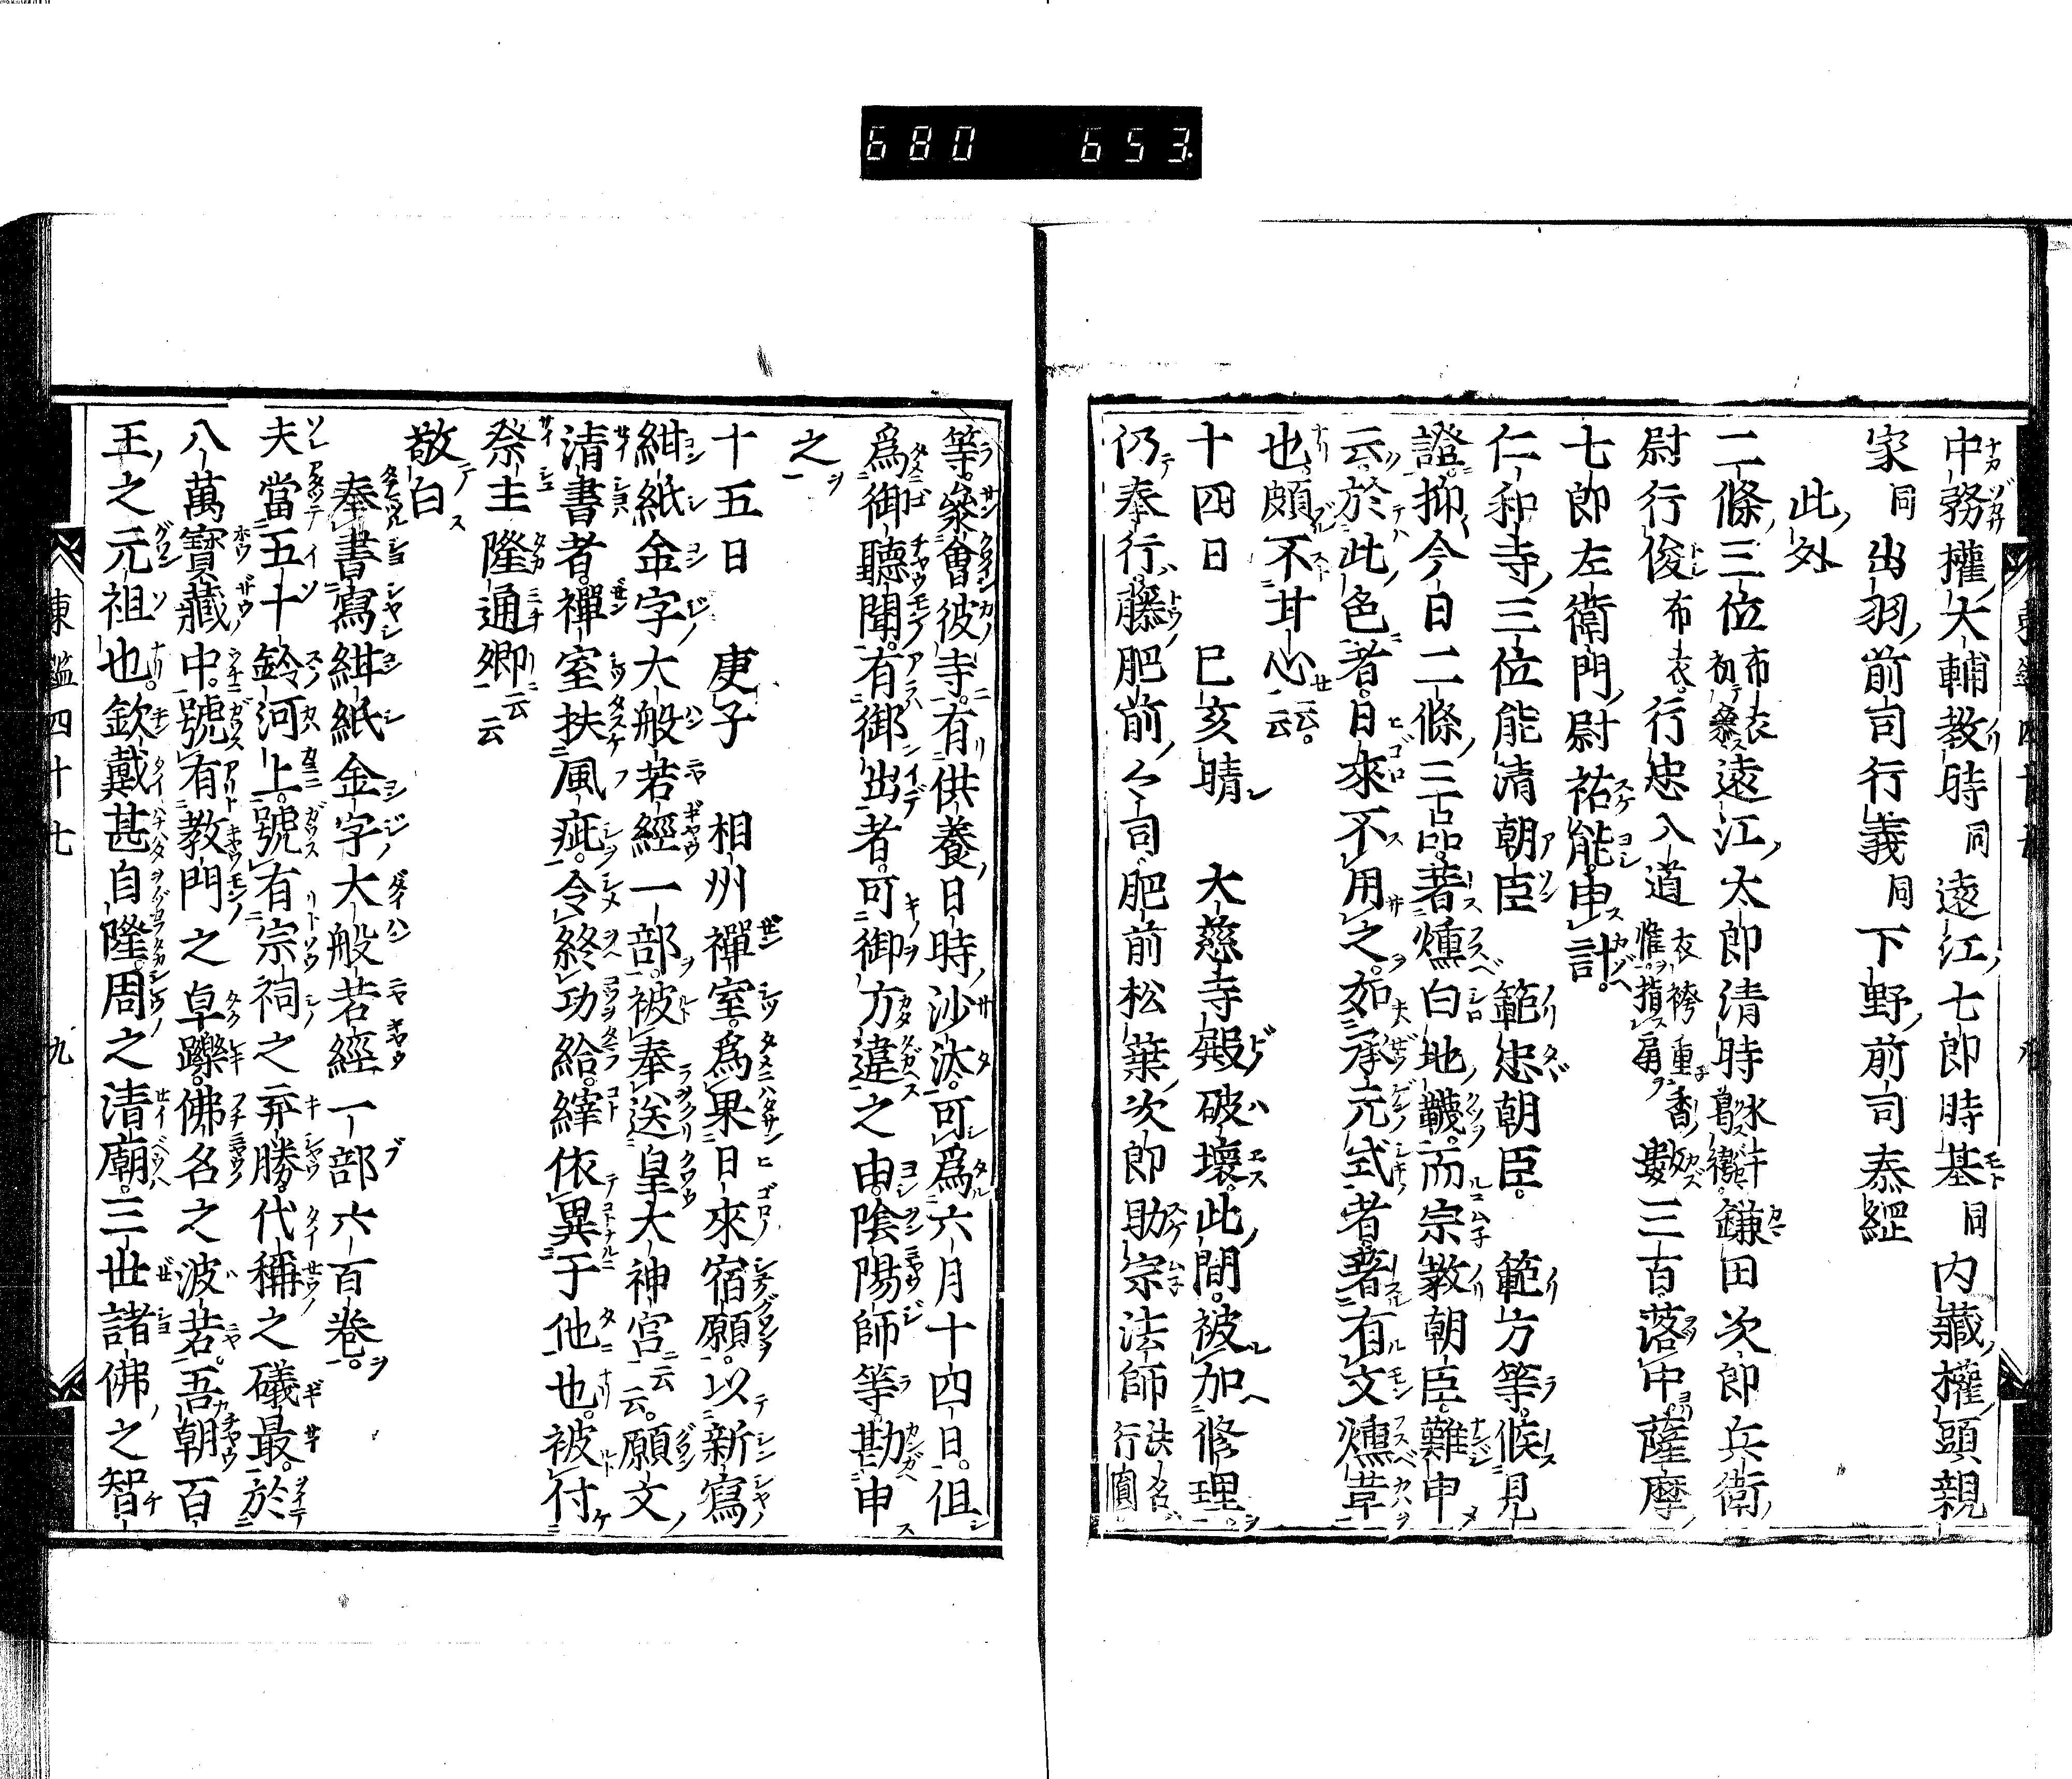 680 653.
中務權大輔教時同遠江七郎時基同内藏權頭親
家同出羽前司行義同下野前司泰經
此外
二條三位布衣初參遠江太郎清時水干葛袴鎌田次郎兵衛
尉行俊布衣行忠入道衣袴重香數三百落中薩摩
七郎左衛門尉祐能申計
仁和寺三位能清朝臣 範忠朝臣 範方等候見
證抑今日二條三品著燻白地韈而宗教朝臣難申
云於此色者日來不用之如承元式者著有文燻革
也頗不甘心云云
十四日 己亥晴 大慈寺殿破壞此間被加修理
仍奉行藤肥前々司肥前松葉次郎助宗法師法名行圓
等參會彼寺有供養日時沙汰可爲六月十四日但
爲御聽聞有御出者可御方違之由陰陽師等勘申
之
十五日 庚子 相州禪室爲果日來宿願以新寫
紺紙金字大般若經一部被奉送皇大神宮云云願文
清書者禪室扶風疵令終功給繹依異于他也被付
祭主隆通卿云云
敬白
奉書寫紺紙金字大般若經一部六百卷
夫當五十鈴河上號有宗祠之弄勝代稱之礒最於
八萬寶藏中號有教門之卓躒佛名之波若吾朝百
王之元祖也欽戴甚自隆周之清廟三世諸佛之智
東鑑四十七 九